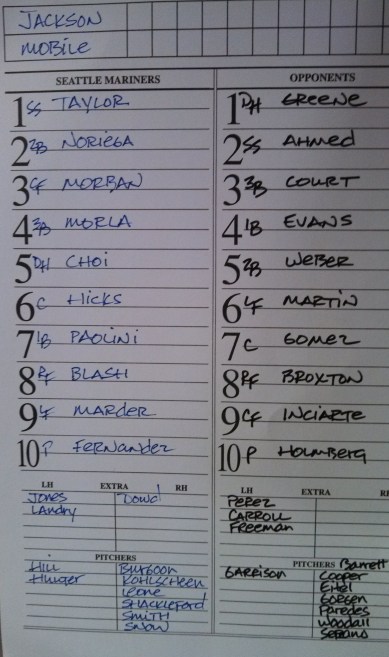 JACKSON
MOBILE
SEATTLE MARINERS
1 SS TAYLOR
2 2B NORIEGA
3 CF MORBAN
4 3B MORLA
5 DH CHOI
6 C HICKS
7 1B PAOLINI
8 RF BLASH
9 LF MARDER
10 P FERNANDEZ
LH EXTRA RH
JONES DOWD
LANDRY
PITCHERS
HILL BURGOON
HUNTER KOHLSCHEEN
LEONE
SHACKLEFORD
SMITH
SNOW
OPPONENTS
1 DH GREENE
2 SS AHMED
3 3B COURT
4 1B EVANS
5 2B WEBER
6 LF MARTIN
7 C GOMEZ
8 RF BROXTON
9 CF INCIARTE
10 P HOLMBERG
LH EXTRA
PEREZ
CARROLL
FREEMAN
PITCHERS Barrett
GARRISON COOPER
EITEL
GORGEN
PAREDES
WOODALL